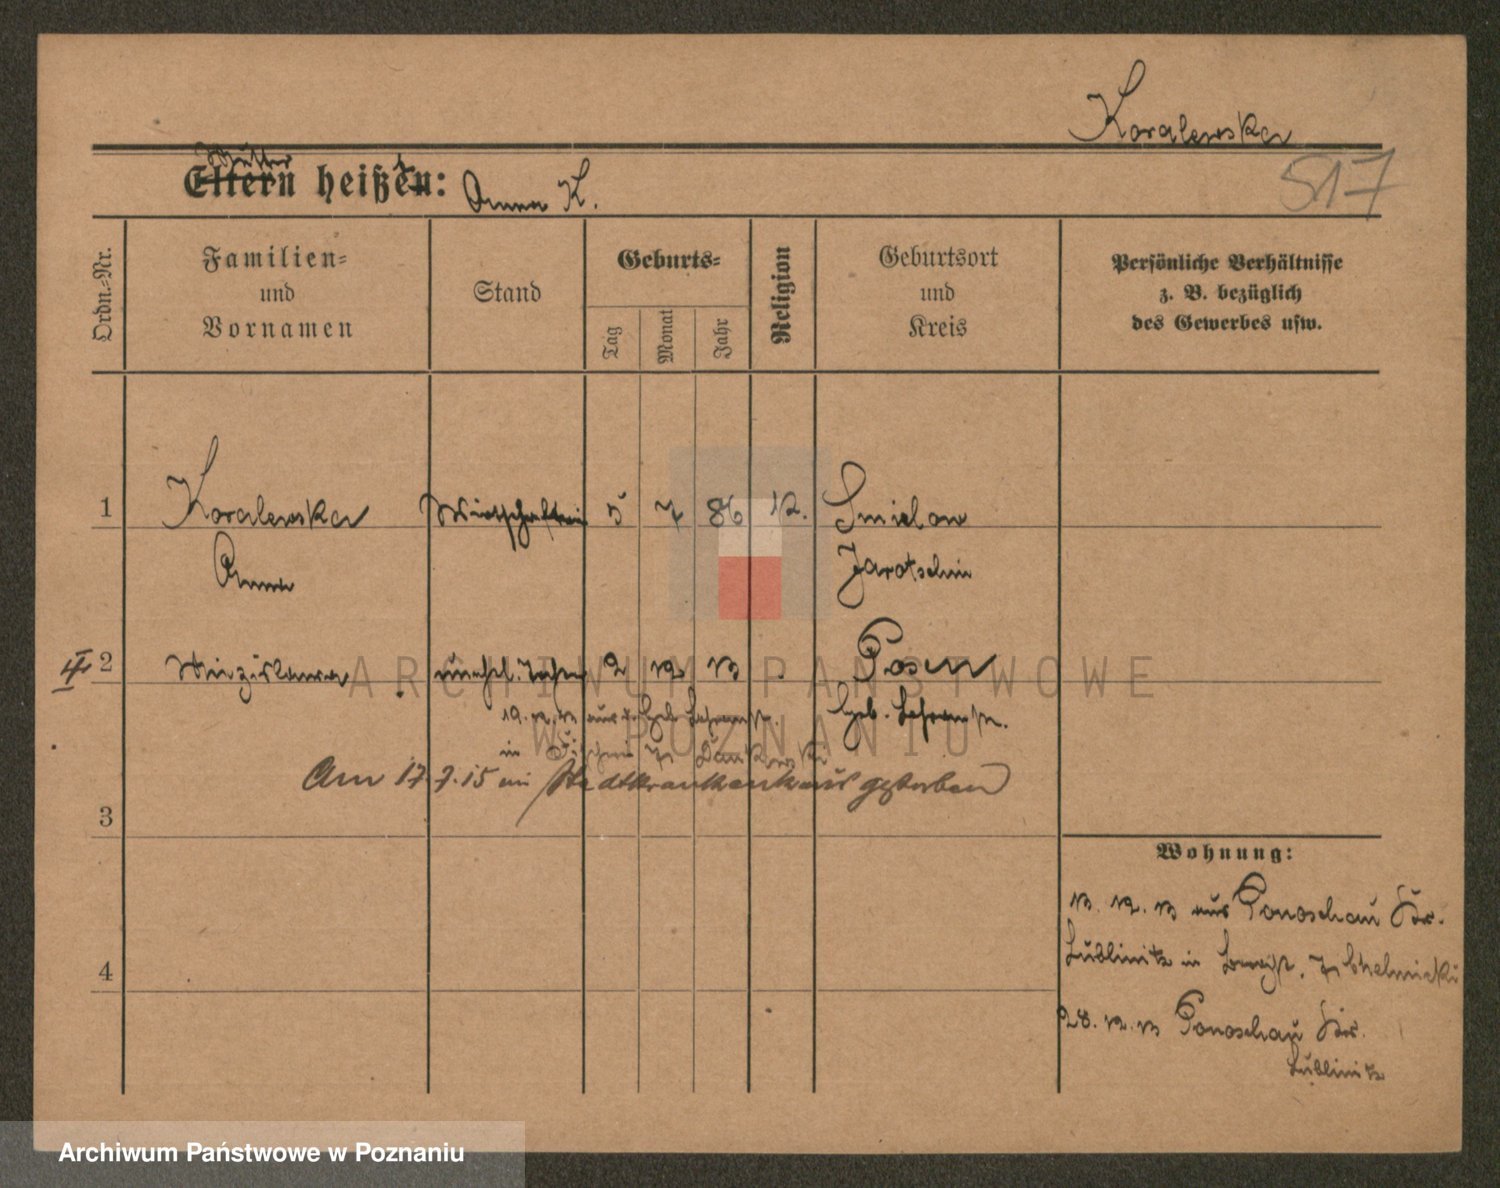 Koralewska
517
Mutter
Eltern heißen: Anna K.
Ordn.-Nr.
Familien-
und
Vornamen
Stand
Geburts-
Tag
Monat
Jahr
Religion
Geburtsort
und
Kreis
Persönliche Verhältnisse
z. B. bezüglich
des Gewerbes usw.
1 Koralewska Wirtschafterin 5 7 86 K. Smielow
Anna Jarotschin
2 12 13 Posen
19. 12. 13 aus
in
Am 17.7.15 im Stadtkrankenhaus gestorben
3
Wohnung:
13. 12. 13 aus Ponoschau Kr.
Lublinitz in
4
28. 12. 13 Ponoschau Kr.
Lublinitz
ARCHIWUM PAŃSTWOWE
W POZNANIU
Archiwum Państwowe w Poznaniu